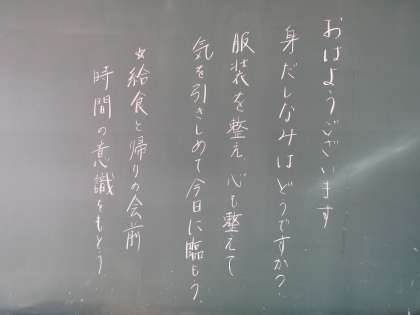 おはようございます
身だしなみはどうですか?
服装を整え、心も整えて
気を引きしめて今日に臨もう。
☆給食と帰りの会前
時間の意識をもとう